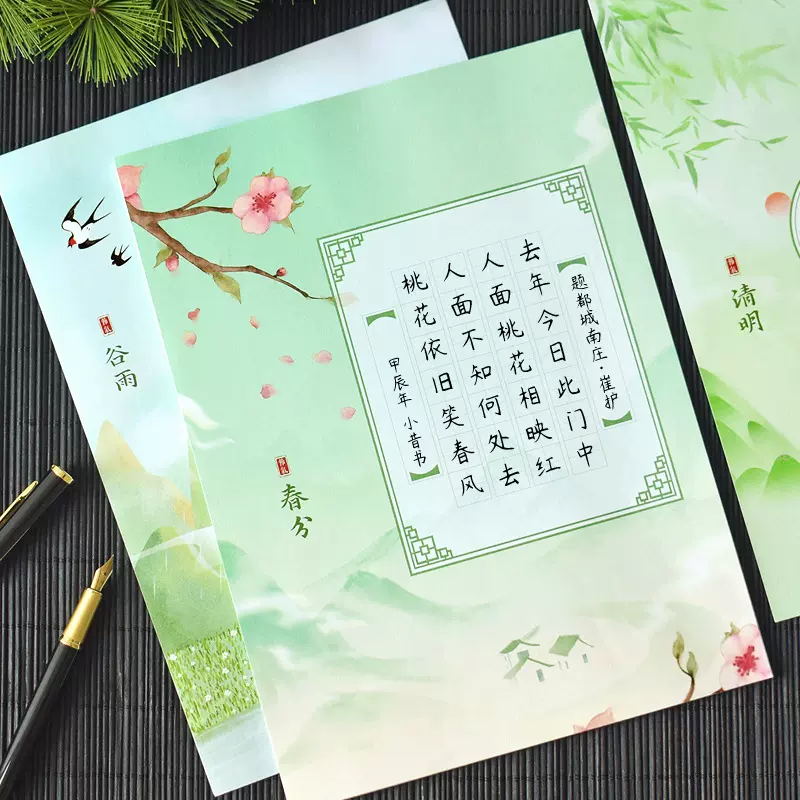 题都城南庄·崔护
去年今日此门中
人面桃花相映红
人面不知何处去
桃花依旧笑春风
甲辰年 小昔书
春分
谷雨
清明